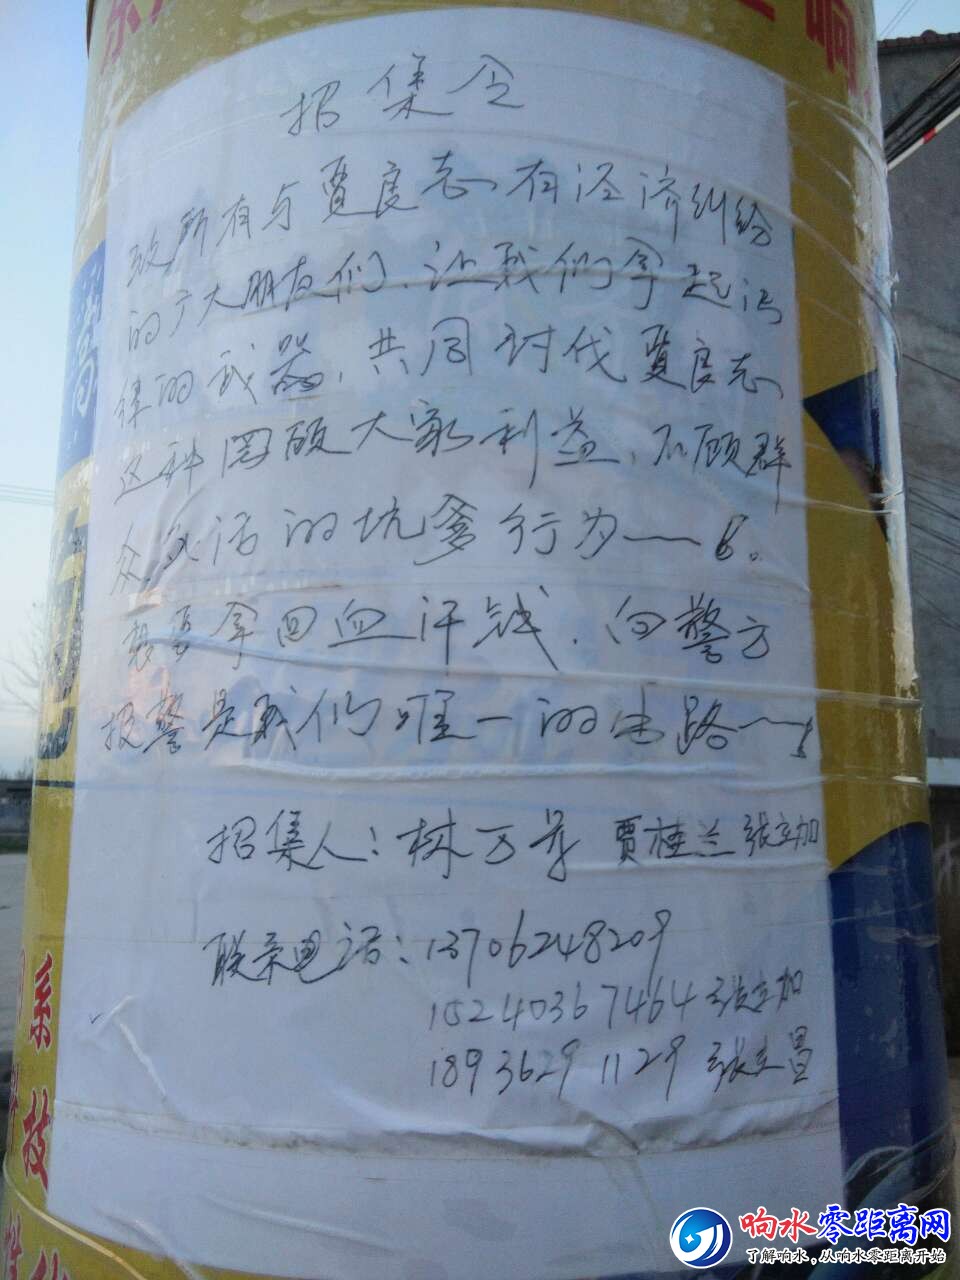 响
招集令
致所有与贾良志有泾济纠纷
的广大朋友们、让我们拿起法
律的武器、共同讨伐贾良志
这种罔顾大家利益、不顾群
众生活的坑爹行为——6。
想要拿回血汗钱、向警方
报警是我们唯一的出路——!
招集人：林万 贾桂兰 张立加
联系电话：13706248209
15240367464 张立加
18936291129 张立昌
系
技
响水零距离网
了解响水，从响水零距离开始